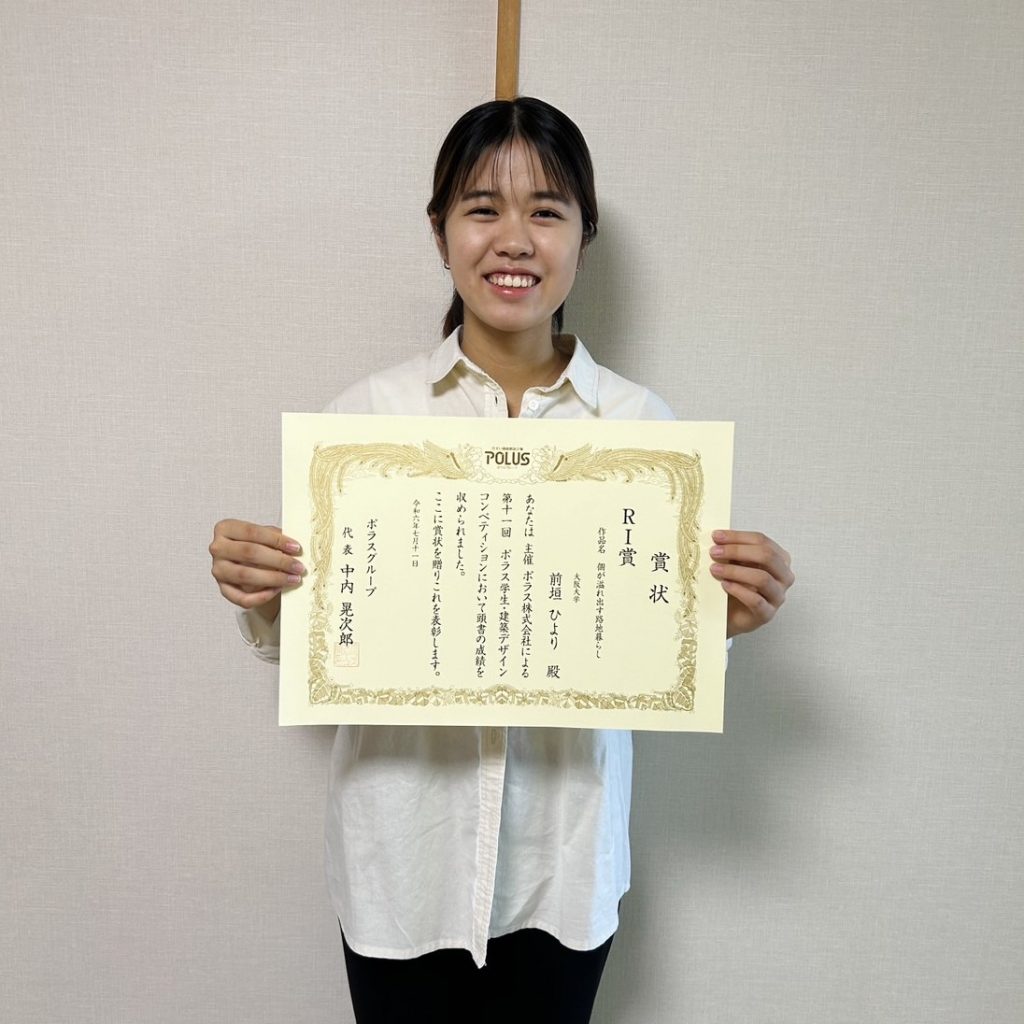 POLUS
賞状
RI賞
作品名 個が溢れ出す路地暮らし
大阪大学
前垣 ひより 殿
あなたは 主催 ポラス株式会社による
第十一回 ポラス学生・建築デザイン
コンペティションにおいて頭書の成績を
収められました。
ここに賞状を贈りこれを表彰します。
令和六年七月十一日
ポラスグループ
代表 中内 晃次郎